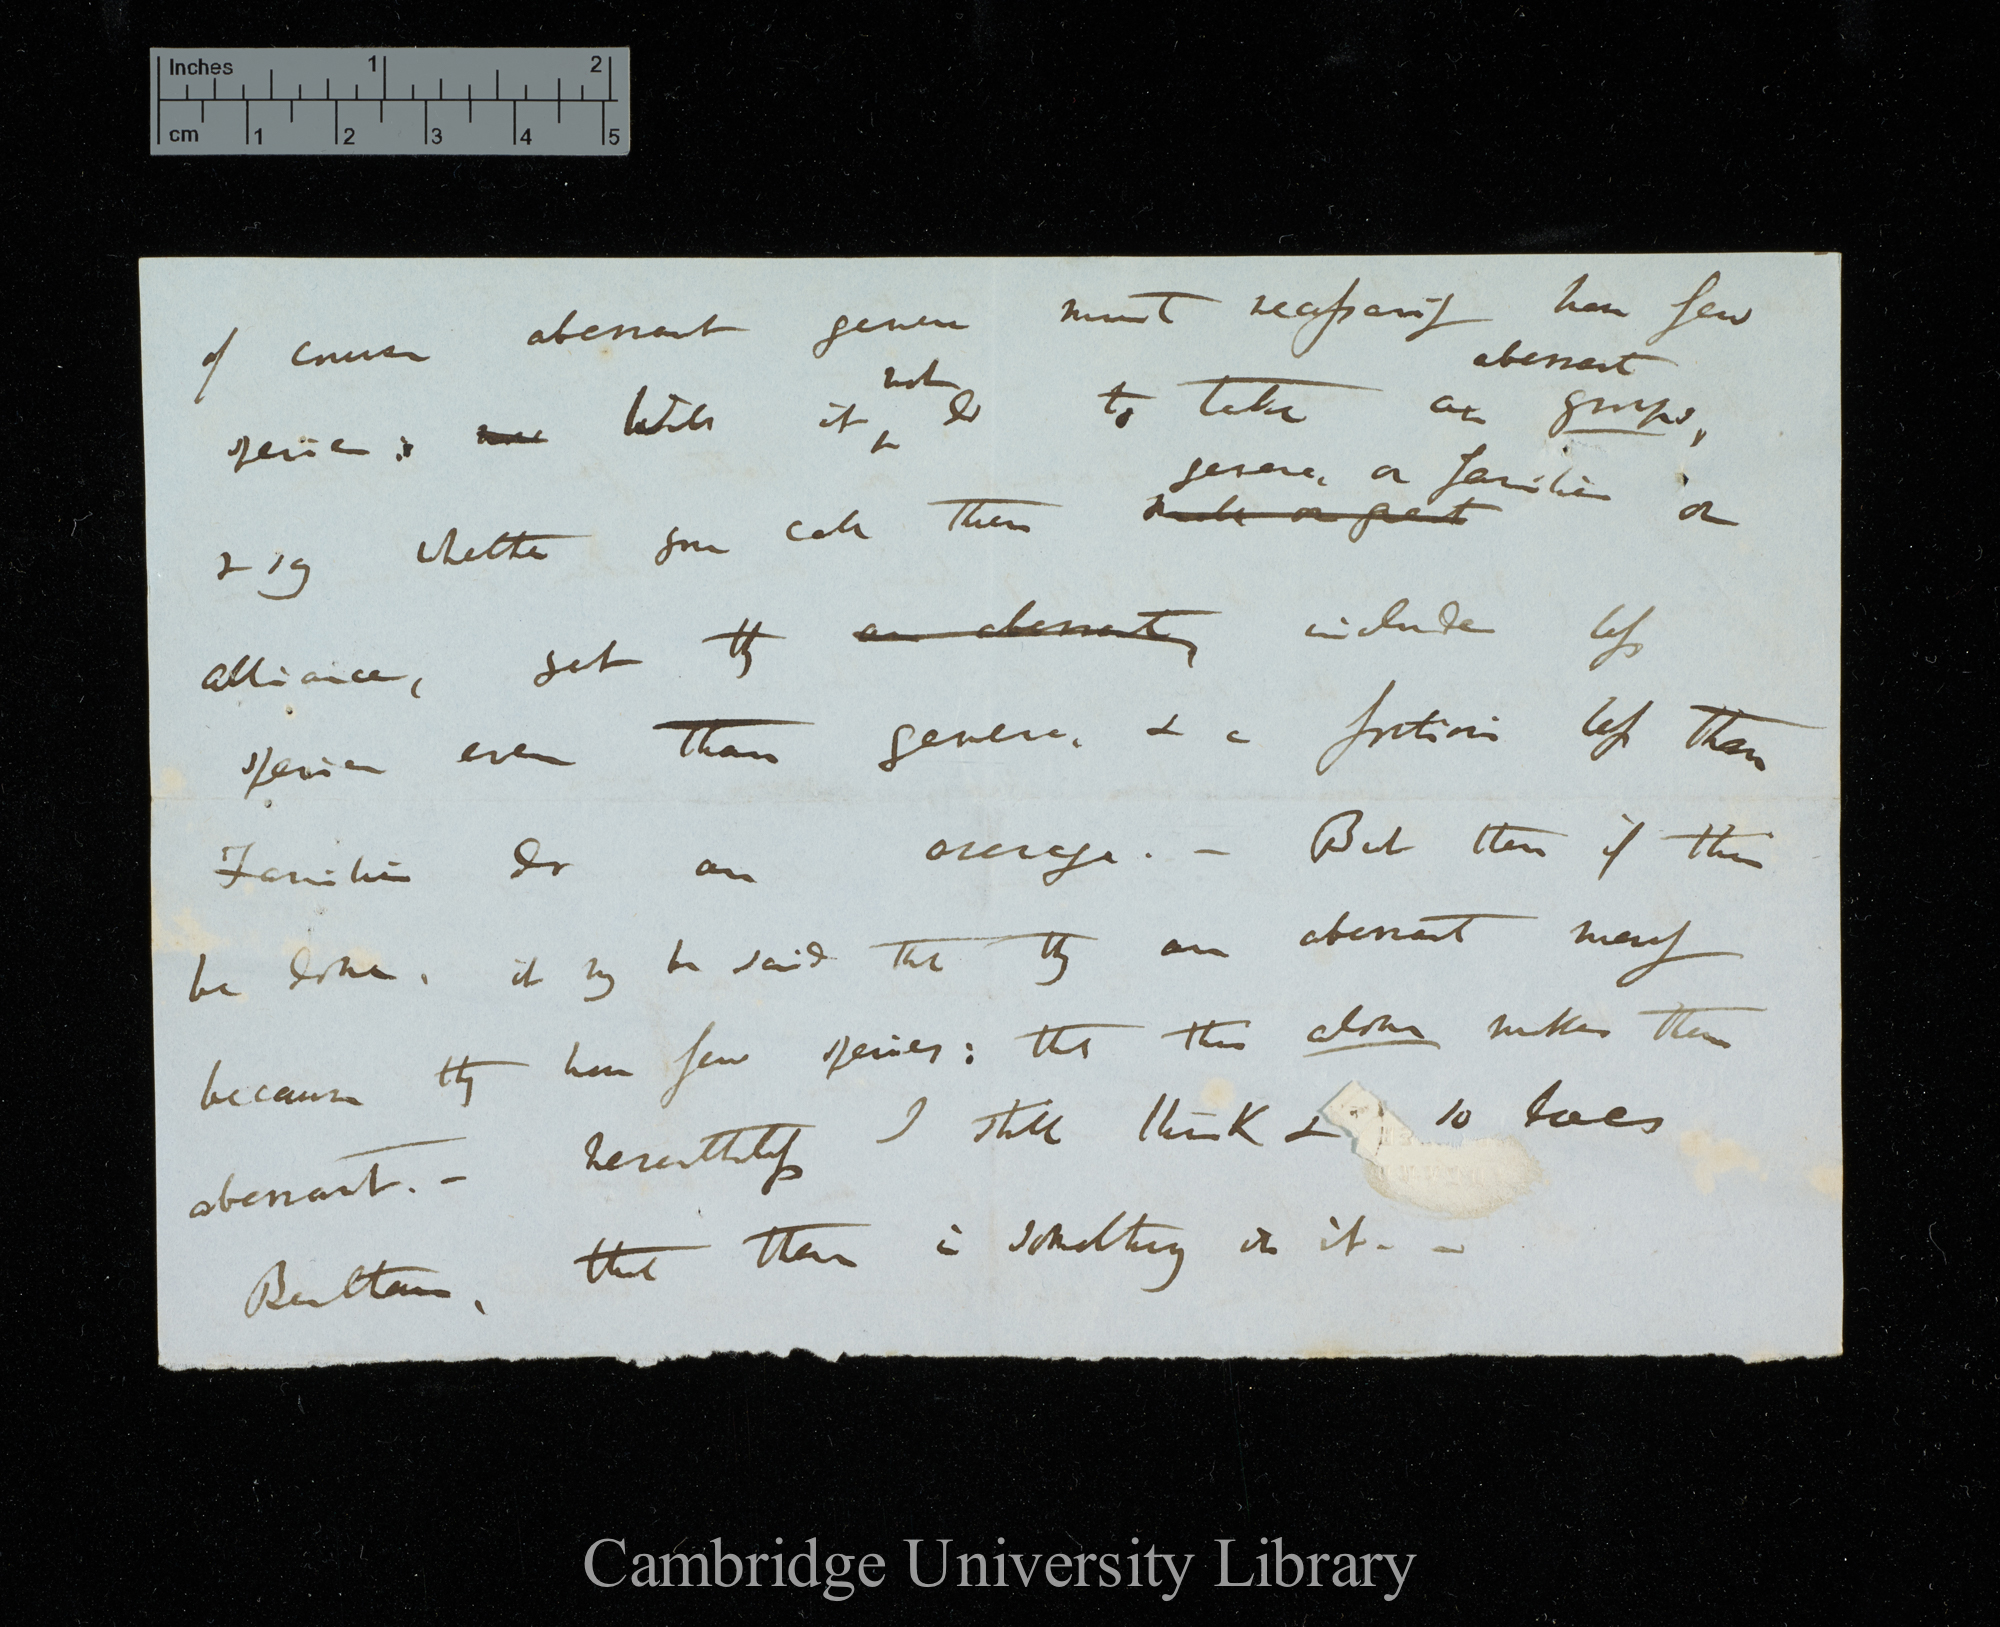 Inches 1 2
cm 1 2 3 4 5
of course aberrant genera must necessarily have few
aberrant
species: will it not do to take an groups,
genera, or families or
& say whether you call them
alliance, yet they are aberrant, include less
species even than genera, & a fortiori less than
Families do on average. — But then if this
be done, it may be said that they are aberrant merely
because they have few species: that this alone makes them
aberrant. — nevertheless I still think & so does
Bentham, that there is something in it. —
Cambridge University Library